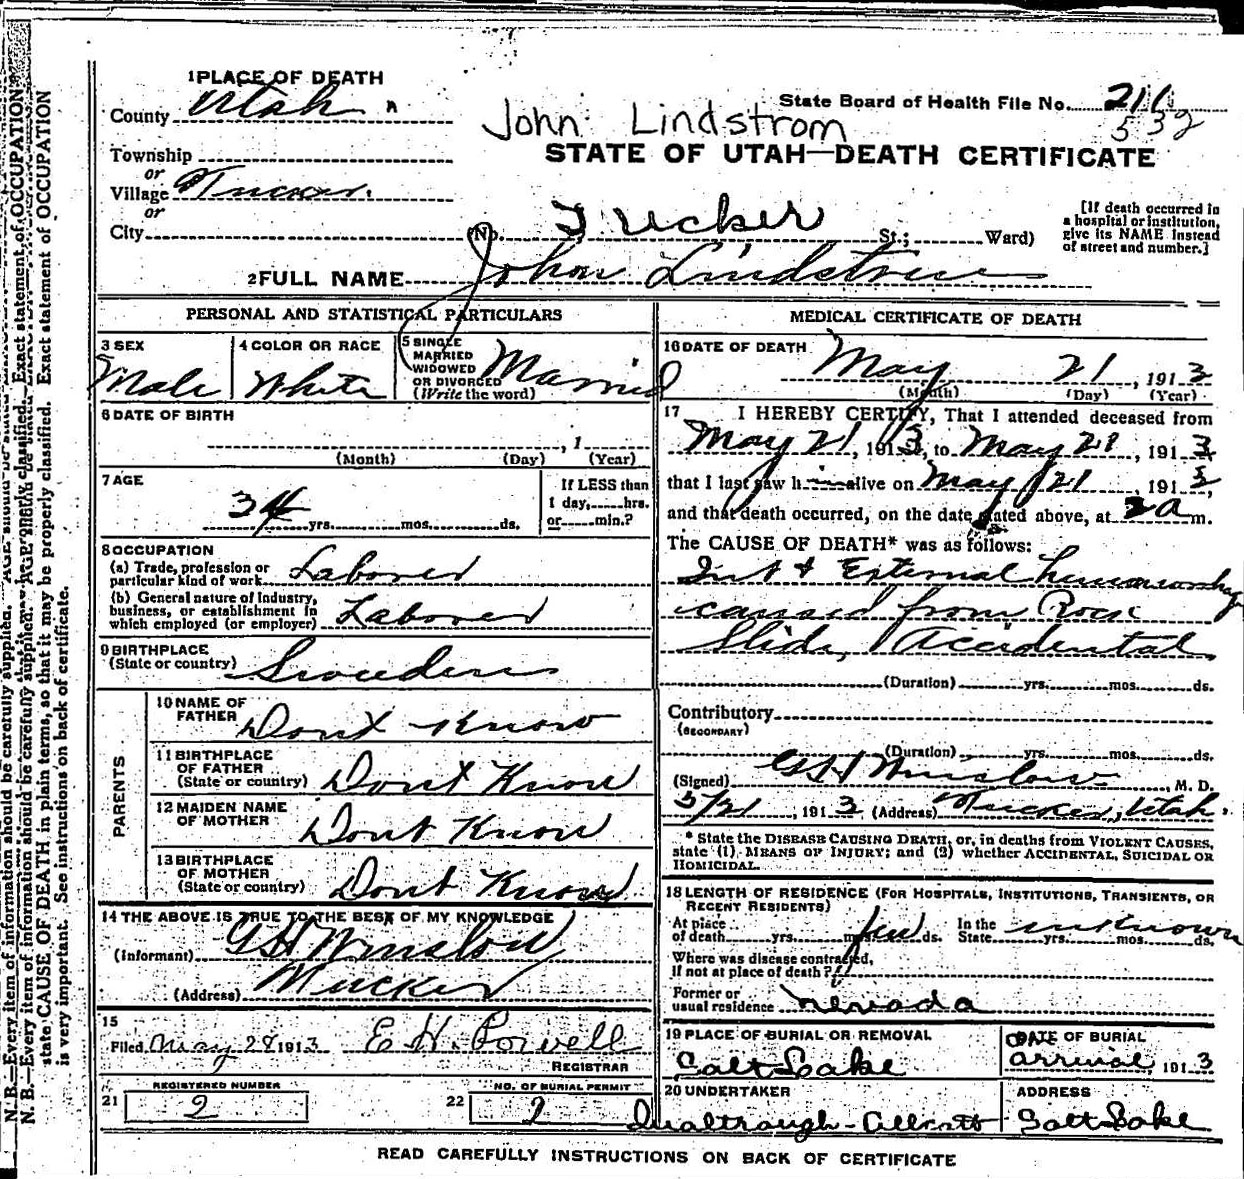 1 PLACE OF DEATH
County Utah
State Board of Health File No. 211
532
John Lindstrom
STATE OF UTAH—DEATH CERTIFICATE
Township
or
Village Tucker.
or
City
(No. Tucker St.; Ward)
[If death occurred in
a hospital or institution,
give its NAME instead
of street and number.]
2 FULL NAME John Lindstrom
PERSONAL AND STATISTICAL PARTICULARS
3 SEX
Male
4 COLOR OR RACE
White
5 SINGLE
MARRIED
WIDOWED
OR DIVORCED
(Write the word)
Married
6 DATE OF BIRTH
, 1
(Month) (Day) (Year)
7 AGE
34 yrs. mos. ds.
If LESS than
1 day, hrs.
or min.?
8 OCCUPATION
(a) Trade, profession or
particular kind of work Laborer
(b) General nature of industry,
business, or establishment in
which employed (or employer) Laborer
9 BIRTHPLACE
(State or country) Sweeden
PARENTS
10 NAME OF
FATHER Dont Know
11 BIRTHPLACE
OF FATHER
(State or country) Dont Know
12 MAIDEN NAME
OF MOTHER
Dont Know
13 BIRTHPLACE
OF MOTHER
(State or country) Dont Know
14 THE ABOVE IS TRUE TO THE BEST OF MY KNOWLEDGE
(Informant) GH Winslow
(Address) Tucker
15
Filed May 28 1913 E H. Powell
REGISTRAR
REGISTERED NUMBER
21 2
NO. OF BURIAL PERMIT
22 2
MEDICAL CERTIFICATE OF DEATH
16 DATE OF DEATH
May 21, 1913
(Month) (Day) (Year)
17 I HEREBY CERTIFY, That I attended deceased from
May 21, 1913, to May 21, 1913
that I last saw h alive on May 21, 1913,
and that death occurred, on the date stated above, at 2 a m.
The CAUSE OF DEATH* was as follows:
Int & External
caused from Rock
Slide, Accidental
(Duration) yrs. mos. ds.
Contributory
(SECONDARY)
(Duration) yrs. mos. ds.
(Signed) GH Winslow, M. D.
5/21, 1913 (Address) Tucker, Utah.
* State the DISEASE CAUSING DEATH, or, in deaths from VIOLENT CAUSES,
state (1) MEANS OF INJURY; and (2) whether ACCIDENTAL, SUICIDAL OR
HOMICIDAL.
18 LENGTH OF RESIDENCE (FOR HOSPITALS, INSTITUTIONS, TRANSIENTS, OR
RECENT RESIDENTS)
At place
of death yrs. mos. few ds.
In the
State unknown yrs. mos. ds.
Where was disease contracted,
If not at place of death?
Former or
usual residence nevada
19 PLACE OF BURIAL OR REMOVAL
Salt Lake
DATE OF BURIAL
arrival 1913
20 UNDERTAKER
ADDRESS
Salt Lake
READ CAREFULLY INSTRUCTIONS ON BACK OF CERTIFICATE
N. B.—Every item of information should be carefully supplied. AGE should be stated EXACTLY.
state CAUSE OF DEATH in plain terms, so that it may be properly classified. Exact statement of OCCUPATION
is very important. See instructions on back of certificate.